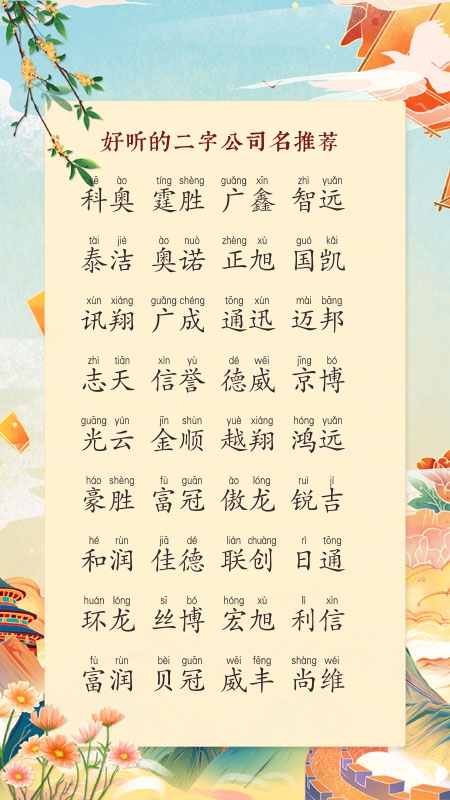 好听的二字公司名推荐
kē ào tíng shèng guǎng xīn zhì yuǎn
科奥 霆胜 广鑫 智远
tài jié ào nuò zhèng xù guó kǎi
泰洁 奥诺 正旭 国凯
xùn xiáng guǎng chéng tōng xùn mài bāng
讯翔 广成 通迅 迈邦
zhì tiān xìn yù dé wēi jīng bó
志天 信誉 德威 京博
guāng yún jīn shùn yuè xiáng hóng yuǎn
光云 金顺 越翔 鸿远
háo shèng fù guān ào lóng ruì jí
豪胜 富冠 傲龙 锐吉
hé rùn jiā dé lián chuàng rì tōng
和润 佳德 联创 日通
huán lóng sī bó hóng xù lì xìn
环龙 丝博 宏旭 利信
fù rùn bèi guān wēi fēng shàng wéi
富润 贝冠 威丰 尚维